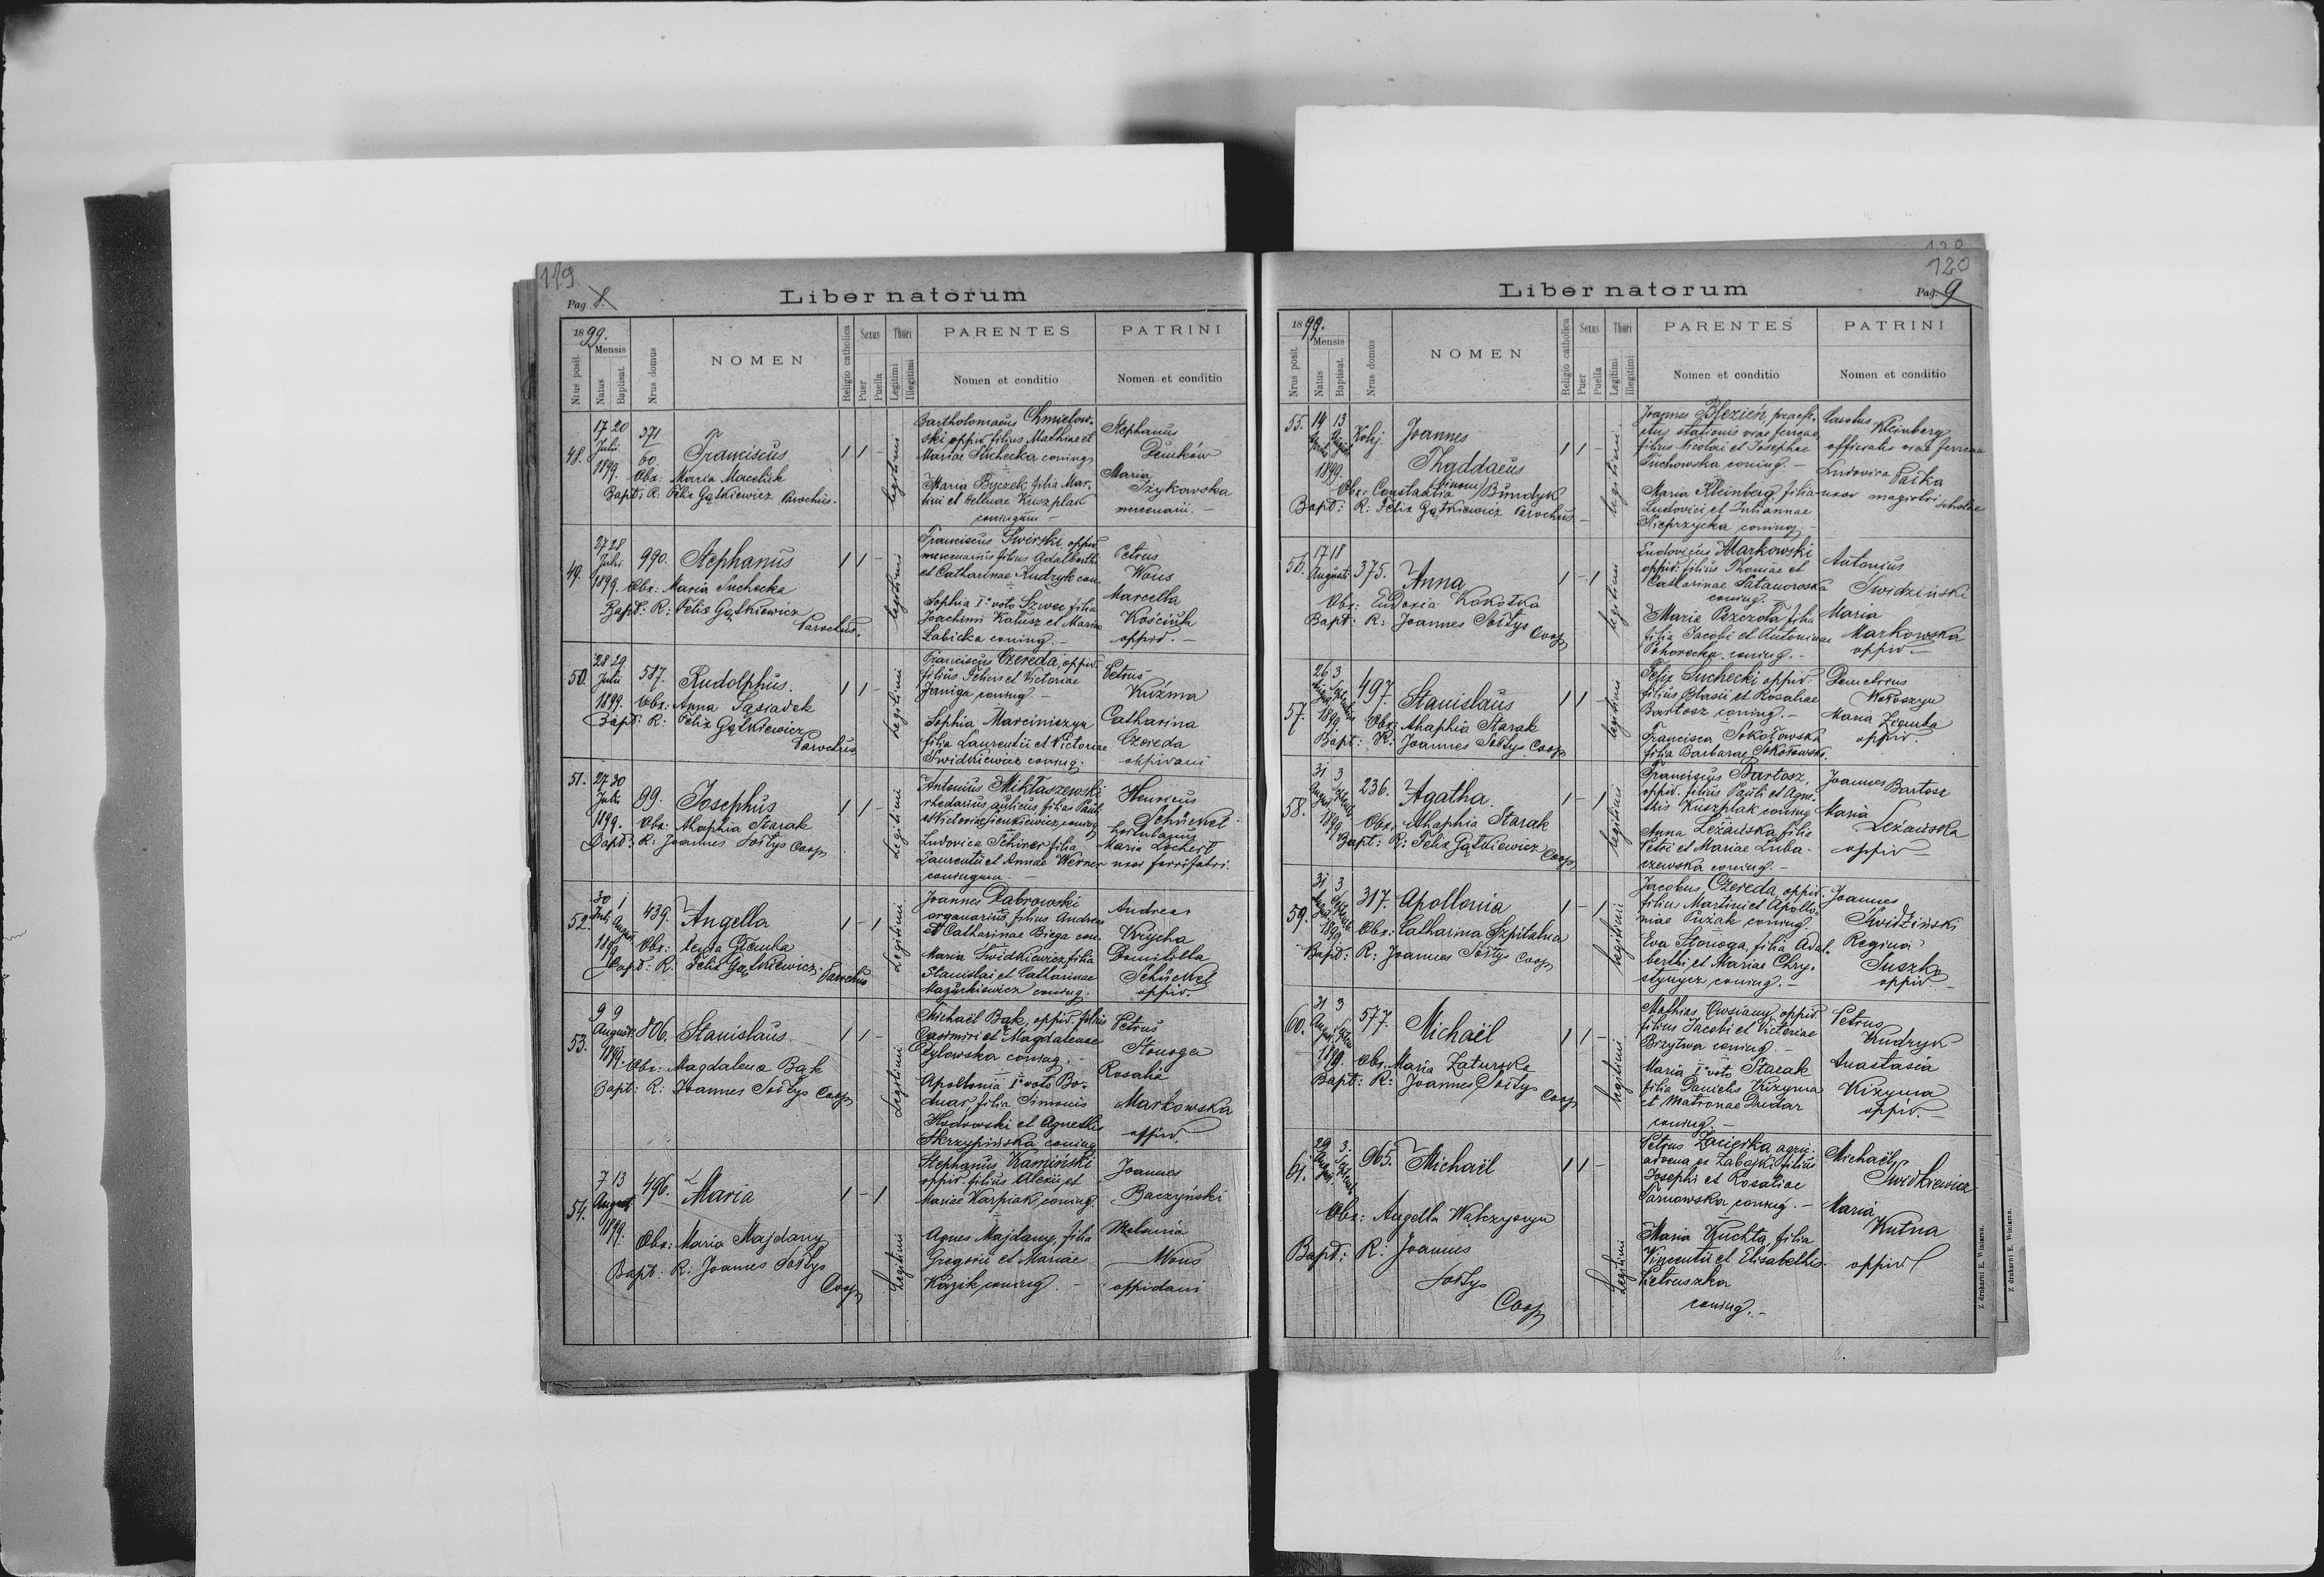 119
Pag. 8.
Liber natorum
1899.
Nrus posit.
Mensis
Natus
Baptisat.
Nrus domus
NOMEN
Religio catholica
Sexus
Puer
Puella
Thori
Legitimi
Illegitimi
PARENTES
Nomen et conditio
PATRINI
Nomen et conditio
48.
17 20
Julii
1899.
371
60.
Franciscus
Obx: Maria Maceluk
Bapt: R: Felix Gątkiewicz Parochus.
1 1 -
legitimi
Bartholomaeus Chmielow-
ski oppid. filius Mathiae et
Mariae Suchecka coniug.
Maria Byczek filia Mar-
tini et Helenae Kuszplak
coniugum -
Stephanus
Demków
Maria
Iżykowska
mercenarii. -
49.
27 28
Julii
1899.
990.
Stephanus
Obx: Maria Suchecka
Bapt: R: Felix Gątkiewicz
Parochus.
1 1 -
legitimi
Franciscus Swirski, oppid.
mercenarius filius Adalberthi
et Catharinae Kudryk con.
Sophia Iº voto Szwec filia
Joachimi Kałusz et Mariae
Łabicka coniug. -
Petrus
Wous
Marcella
Kościuk
oppid. -
50.
28 29
Julii
1899.
587.
Rudolphus.
Obx: Anna Sąsiadek
Bapt: R: Felix Gątkiewicz
Parochus
1 1 -
legitimi
Franciscus Czereda, oppid.
filius Felicis et Victoriae
Janiga coniug. -
Sophia Marciniszyn
filia Laurentii et Victoriae
Swidkiewicz coniug.
Petrus
Kuźma
Catharina
Czereda
oppidani
51.
27 30
Julii
1899.
99.
Josephus
Obx: Ahaphia Starak
Bapt: R: Joannes Sołtys Coop
1 1 -
Legitimi
Antonius Miktaszewski
rhedarius aulicus filius Pauli
et Victoriae Sienkiewicz coniug
Ludovica Schirer filia
Laurentii et Annae Werner
coniugum. -
Henricus
Schückel
hortulanus
Maria Lochert
uxor ferrifabri.
52.
30 1
Juli August
1899
439.
Angella
Obx: Ziemba
Bapt: R. Felix Gątkiewicz. Parochus
1 - 1
Legitimi
Joannes Dabrowski
organarius, filius Andreae
et Catharinae Biega con.
Maria Swidkiewicz filia
Stanislai et Catharinae
Mazurkiewicz coniug.
Andreas
Krycha
Domicilla
Schückel
oppid.
53.
9 9
August.
1899.
806.
Stanislaus
Obx: Magdalena Bąk
Bapt: R: Joannes Sołtys Coop
1 1 -
Legitimi
Michaël Bąk, oppid. filius
Casimiri et Magdalenae
Pylowska coniug. -
Apollonia Iº voto Bo-
dnar filia Simonis
Hodowski et Agnethis
Skrzypińska coniug
Petrus
Stonoga
Rosalia
Markowska
oppid.
54.
7 13
August
1899.
496.
Maria
Obx: Maria Majdany
Bapt: R: Joannes Sołtys
Coop
1 - 1
Legitimi
Stephanus Kamiński
oppid. filius Alexii et
Mariae Karpiak, coniug.
Agnes Majdany, filia
Gregorii et Mariae
Kozik, coniug. -
Joannes
Baczyński
Melania
Wous
oppidani
120
120
Pag. 9
Liber natorum
1899.
Nrus posit.
Mensis
Natus
Baptisat.
Nrus domus
NOMEN
Religio catholica
Sexus
Puer
Puella
Thori
Legitimi
Illegitimi
PARENTES
Nomen et conditio
PATRINI
Nomen et conditio
55.
14 13
1899.
Kolej
Joannes
Thaddaeus
(binom.)
Obx: Constantia Bundyk
Bapt: R: Felix Gątkiewicz Parochus. -
1 1 -
legitimi.
Joannes Blezień, praefe-
ctus stationis viae ferreae,
filius Nicolai et Josephae
Tuchowska coniug. -
Maria Kleinberg filia
Ludovici et Juliannae
Nieprzycka coniug. -
Carolus Kleinberg
officialis viae ferreae
Ludovica Pałka
uxor magistri scholae
56.
17 18
August.
375.
Anna
Obx: Eudoxia Kokotka
Bapt: R: Joannes Sołtys
Coop
1 - 1
legitimi
Ludovicus Markowski
oppid. filius Thomae et
Catharinae Satanowska
coniug. -
Maria Pszczoła filia
filia Jacobi et Antoninae
Pohorecka coniug. -
Antonius
Swidziński
Maria
Markowska
oppid. -
57.
26 3
1899.
497.
Stanislaus
Obx: Ahaphia Starak
Bapt: R: Joannes Sołtys Coop
1 1 -
legitimi
Felix Suchecki oppid.
filius Blasii et Rosaliae
Bartosz coniug. -
Francisca Sokołowska
filia Barbarae Sokołowska.
Demetrius
Wołoszyn
Maria Ziemba
oppid.
58.
31 3
August.
1899
236.
Agatha.
Obx: Ahaphia Starak
Bapt: R: Felix Gątkiewicz Coop
1 - 1
legitimi
Franciscus Bartosz,
oppid. filius Pauli et Agne-
this Kuszplak coniug
Anna Leżańska, filia
Petri et Mariae Luba-
czewska coniug. -
Joannes Bartosz
Maria
Leżańska
oppid -
59.
31 3
1899
317.
Apollonia
Obx: Catharina Szpitalna
Bapt: R: Joannes Sołtys Coop
1 - 1
legitimi
Jacobus Czereda, oppid.
filius Martini et Apollo-
niae Pużak coniug.
Eva Stonoga, filia Adal-
berthi et Mariae Chry-
stynycz coniug. -
Joannes
Świdziński
Regina
Suszko
oppid. -
60.
31 3
1899
577.
Michaël
Obx: Maria Zaturska
Bapt: R: Joannes Sołtys Coop
1 1 -
legitimi
Mathias Owsiany, oppid.
filius Jacobi et Victoriae
Brzytwa coniug. -
Maria Iº voto Starak
filia Danielis Kizyma
et Matronae Dudar
coniug. -
Petrus
Kudryk
Anastasia
Kizyma
oppid. -
61.
29 3.
965.
Michaël
Obx: Angella Walczyszyn
Bapt: R: Joannes
Sołtys
Coop
1 1 -
Legitimi
Petrus Zacierka, agric.
advena ex Zabajki, filius
Josephi et Rosaliae
Tarnawska coniug. -
Maria Kuchta, filia
Vincentii et Elisabethis
Pietruszka
coniug. -
Michaël
Swidkiewicz
Maria
Kutna
oppid
Z drukarni E. Winiarza.
Z drukarni E. Winiarza.